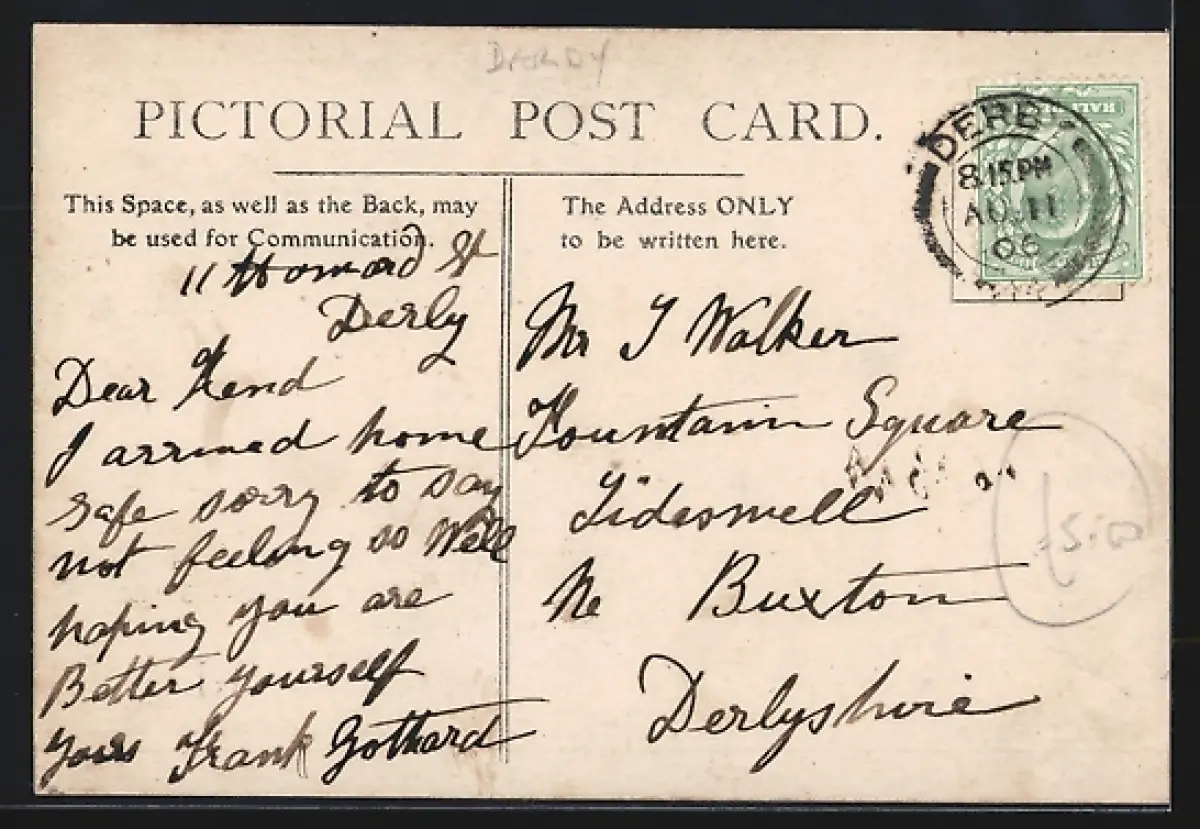 DERBY
PICTORIAL POST CARD.
This Space, as well as the Back, may
be used for Communication.
The Address ONLY
to be written here.
DERBY
8.15 PM
AU 11
06
11 Howard St
Derby
Dear Frend
I arrived home
safe sorry to say
not feeling so Well
hoping you are
Better yourself
yours Frank Gothard
Mr J Walker
Fountain Square
Tideswell
Nr Buxton
Derbyshire